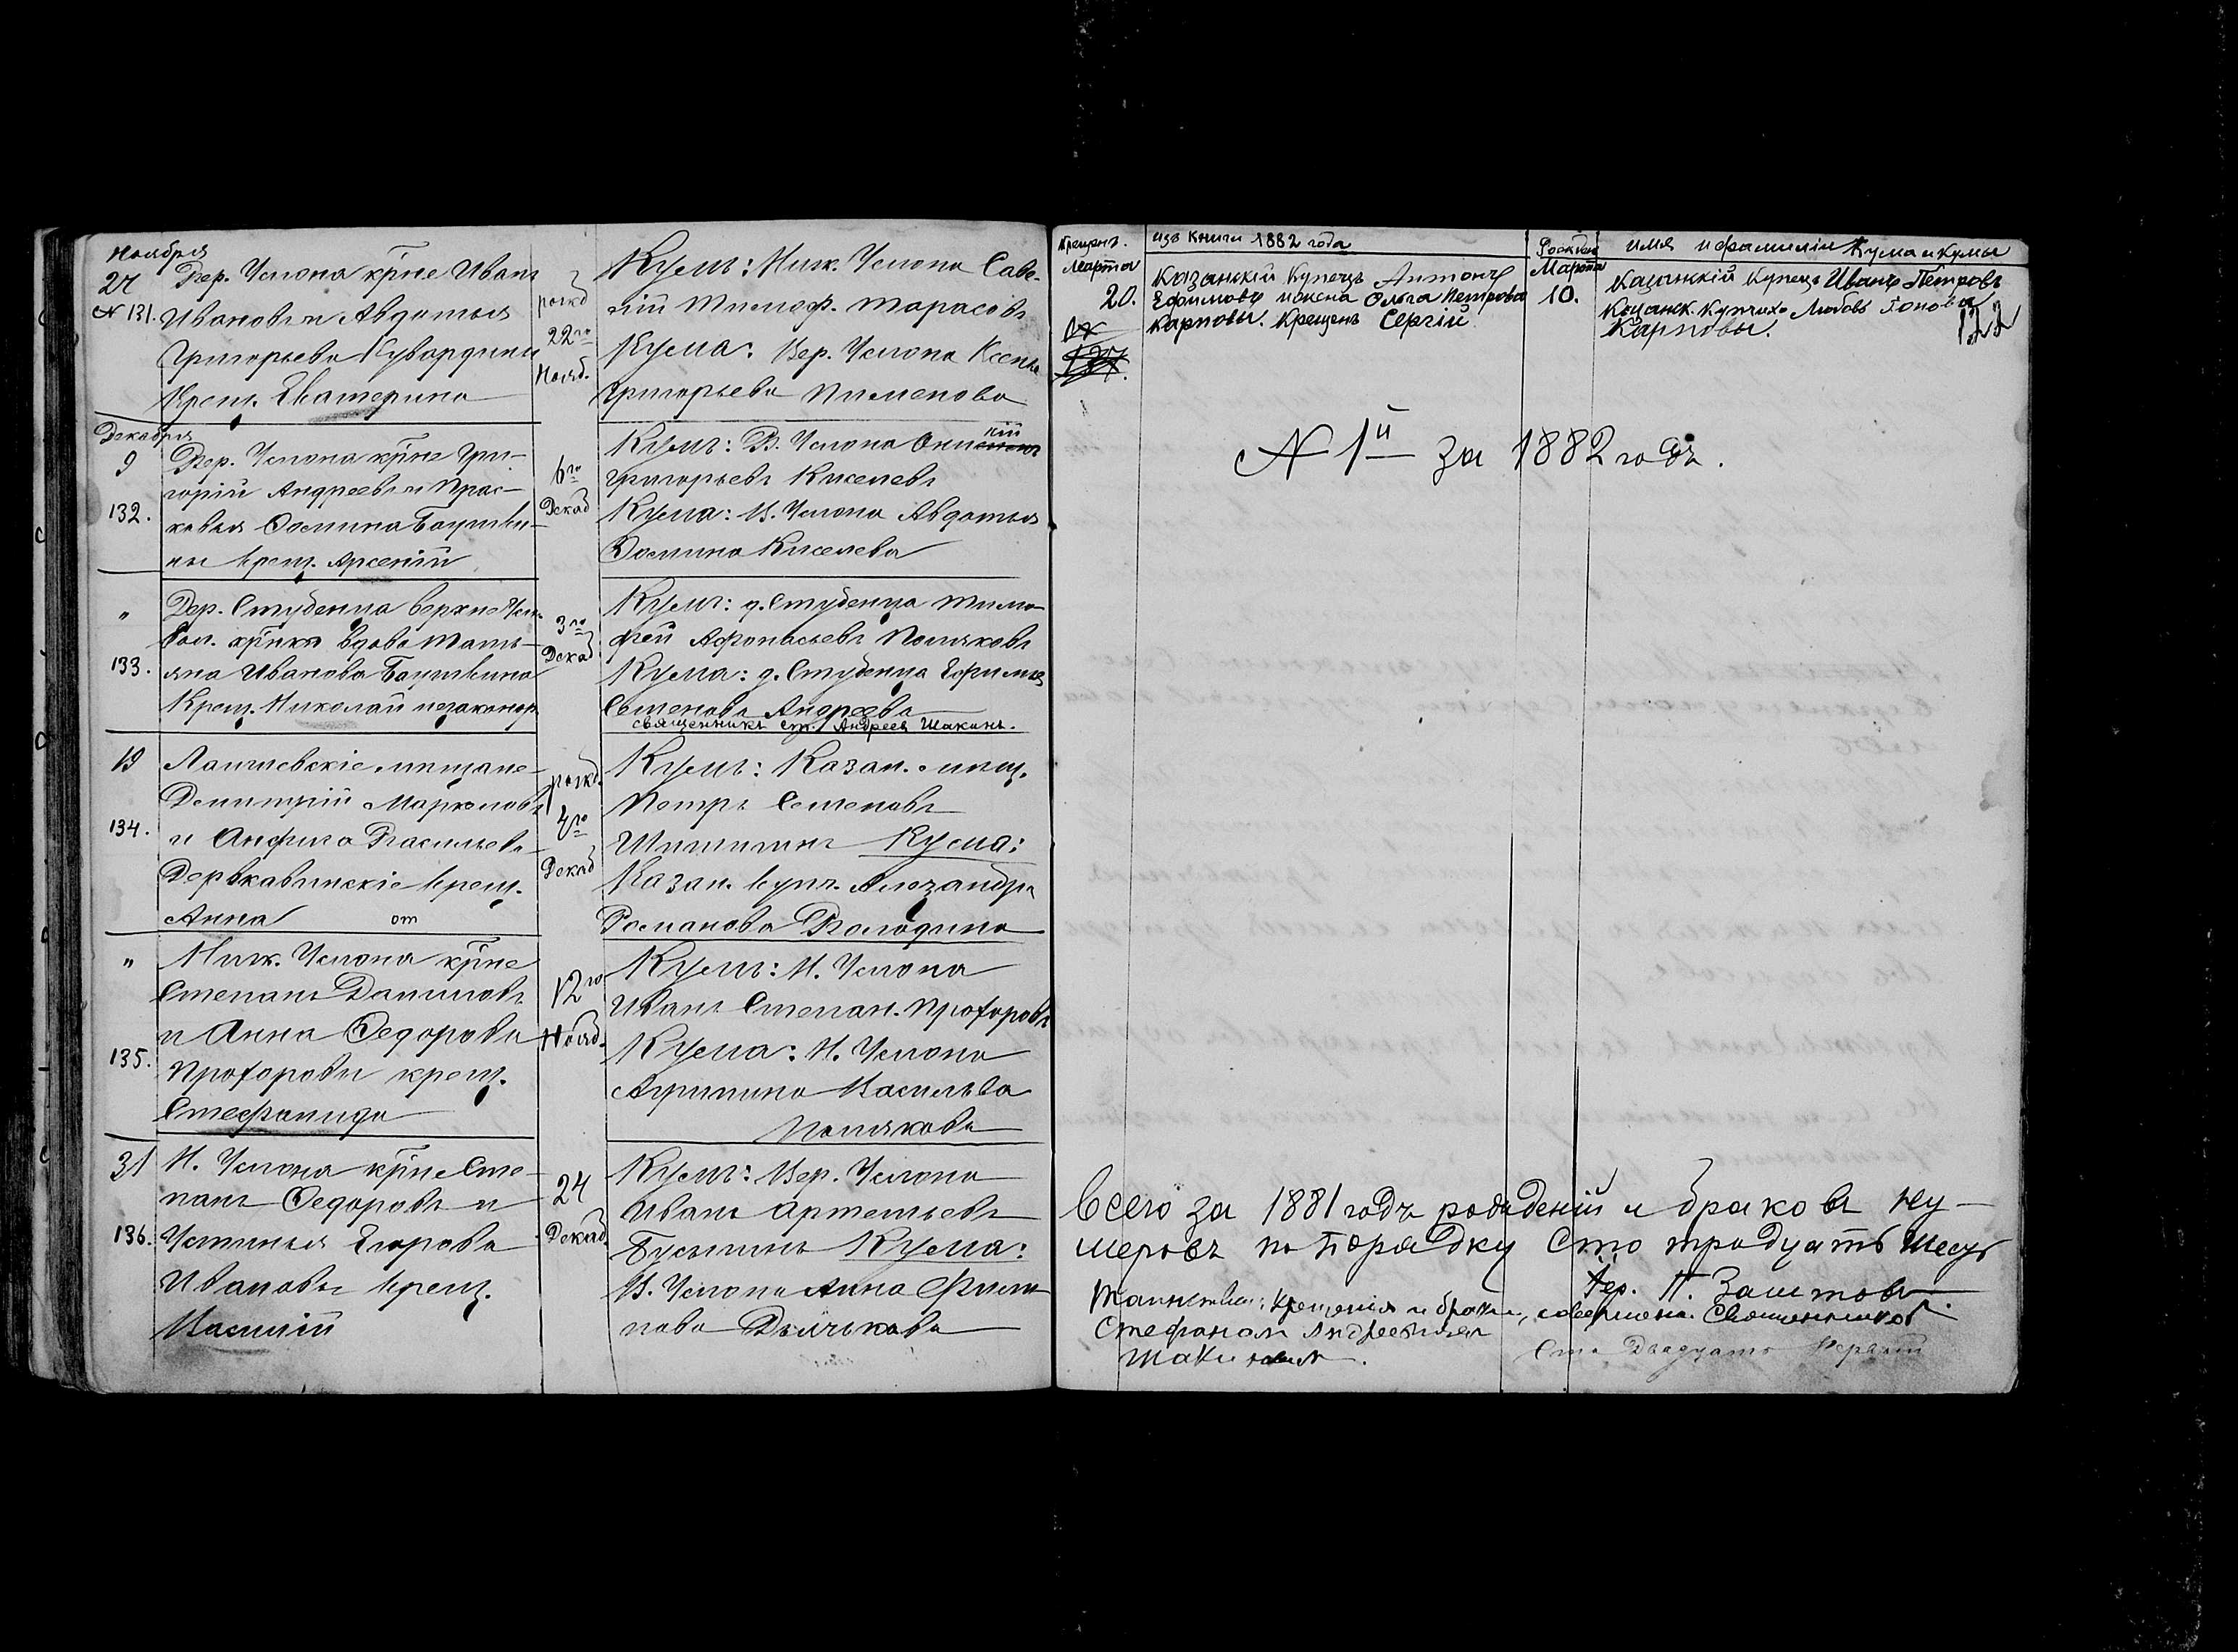 Ноября
27 Вер. Услона кр̅не Иванъ
N 131. Ивановъ и Авдотья
Григорьева Кувардины
Крещ. Екатерина
рожд
22го
Нояб.
Кумъ: Ниж. Услона Саве-
лій Тимоф. Тарасовъ
Кума: Вер. Услона Ксенія
Григорьева Пименова
Декабря
9 Вер. Услона кр̅не Гри-
горій Андреевъ и Прас-
132. ковья Фомина Баушки-
ны крещ. Арсеній
6го
Декаб
Кумъ: В. Услона Они кій
Григорьевъ Киселевъ
Кума: В. Услона Авдотья
Фомина Киселева
" Дер. Студенца Верхне Усл.
вол. кр̅нка вдова Тать-
133. яна Иванова Баушкина
Крещ. Николай незаконор
3го
Декаб
Кумъ: д. Студенца Тимо
фей Афонасьевъ Поляковъ
Кума: д. Студенца Ефимія
Семенова Андреева
священникъ Ст. Андреев Шакинъ.
19 Лаишевскіе мищане
Демитрій Маркеловъ
134. и Анфиса Васильева
Державинскіе крещ.
Анна от
рожд.
4го
Декаб
Кумъ: Казан. мищ.
Петръ Семеновъ
Шишигинъ Кума:
Казан. купч. Александра
Романова Володина
" Ниж. Услона кр̅не
Степанъ Даниловъ
и Анна Федорова
135. Прохоровы крещ.
Стефанида
12го
Нояб.
Кумъ: Н. Услона
Иванъ Степан. Прохоровъ
Кума: Н. Услона
Агрипина Васильва
Полякова
31 Н. Услона кр̅не Сте-
панъ Федоровъ и
136. Устинья Егорова
Ивановы крещ.
Василій
24
Декаб.
Кумъ: Вер. Услона
Иванъ Артемьевъ
Бусыгинъ Кума:
В. Услона Анна Филип
пова Дьячкова
Крещен. изъ книги 1882 года Рожден имя и фамиліи Кума и Кумы
Марта
20.
Казанскій Купецъ Антонъ
Ефимовъ и жена Ольга Петрова
Карповы. Крещенъ Сергій
Марта
10.
Казанскій Купецъ Иванъ Петровъ
Казанск. Купчиха Любовь
Карповы.
122
N 1й за 1882 годъ.
Всего за 1881 годъ рожденій и браковъ ну-
меровъ по порядку Сто тридцать Шесть
Таинства: крещенія и браки, совершена. Священникомъ
Стефаном Андреевичем
Шакиным.
Сто Двадцать Первый